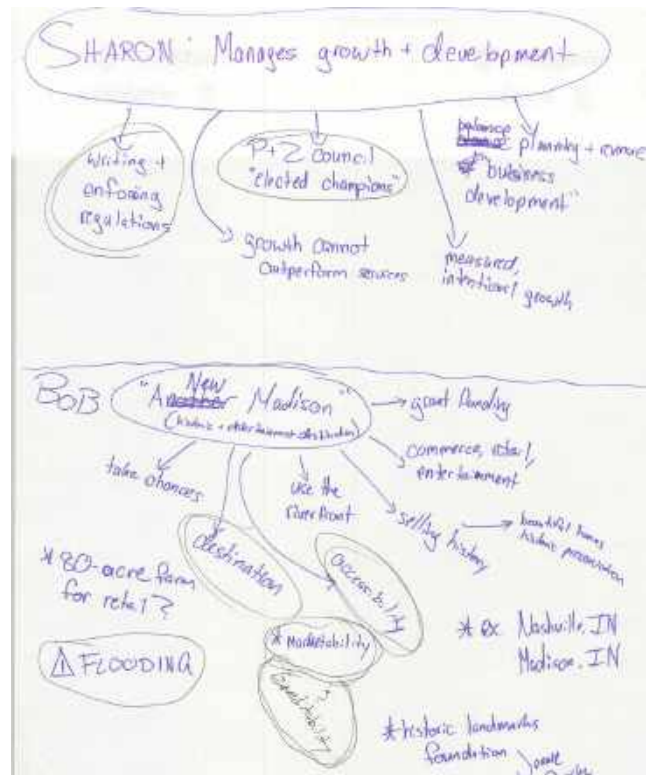 SHARON: Manages growth + development
writing +
enforing
regulations
P+Z Council
"elected champions"
balance
planning + revenue
"business
development"
growth cannot
outperform services
measured,
intentional growth
BOB
New
"A Madison"
(historic + entertainment destination)
grant funding
commerce, retail,
entertainment
take chances
use the
riverfront
selling history
beautiful homes
historic preservation
destination
accessibility
* 80-acre farm
for retail?
* Marketability
* ex. Nashville, IN
Madison, IN
⚠ FLOODING
* historic landmarks
foundation